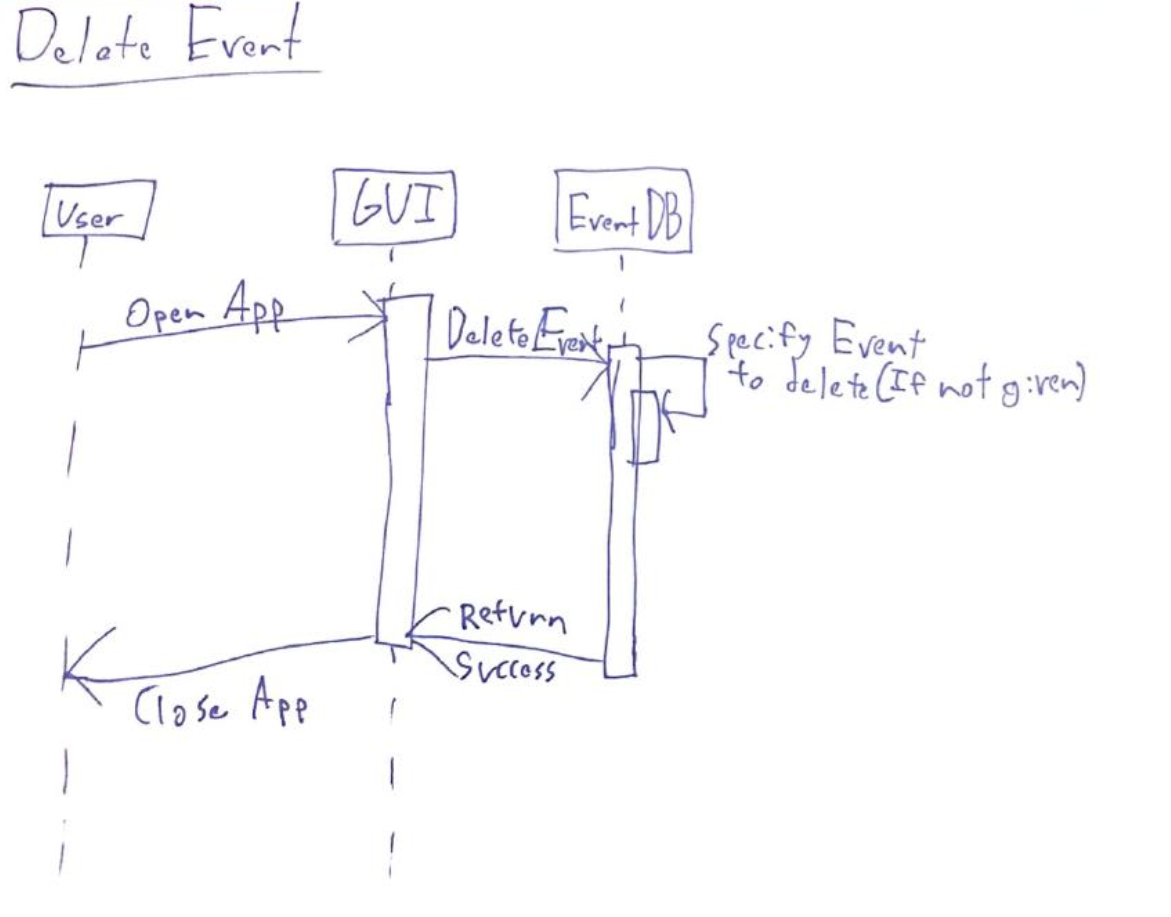 Delete Event
User
GUI
EventDB
Open App
DeleteEvent
Specify Event
to delete (If not given)
Return
Success
Close App